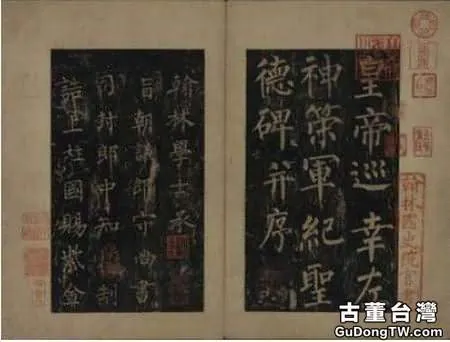 皇帝巡幸左
神策軍紀聖
德碑并序
翰林國史院官
翰林學士承
旨朝議郎守尚書
司封郎中知制
誥上柱國賜紫金
古董台灣
GuDongTW.com